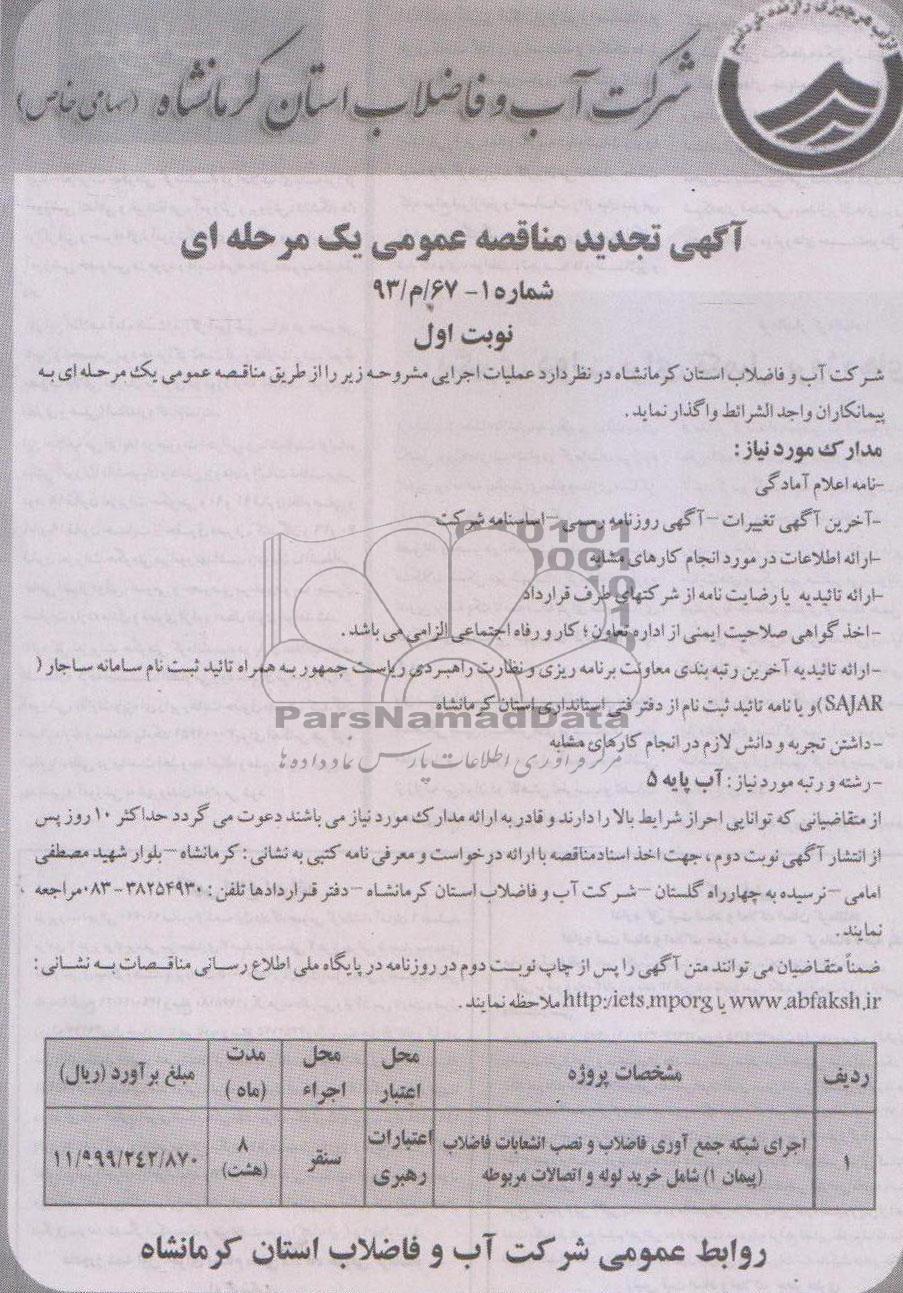 از آب هر چیزی را زنده کردیم
شرکت آب و فاضلاب استان کرمانشاه (سهامی خاص)
آگهی تجدید مناقصه عمومی یک مرحله ای
شماره ۱- ۶۷/م/۹۳
نوبت اول
شرکت آب و فاضلاب استان کرمانشاه در نظر دارد عملیات اجرایی مشروحه زیر را از طریق مناقصه عمومی یک مرحله ای به
پیمانکاران واجد الشرائط واگذار نماید.
مدارک مورد نیاز:
-نامه اعلام آمادگی
-آخرین آگهی تغییرات – آگهی روزنامه رسمی – اساسنامه شرکت
-ارائه اطلاعات در مورد انجام کارهای مشابه
-ارائه تائیدیه یا رضایت نامه از شرکتهای طرف قرارداد
-اخذ گواهی صلاحیت ایمنی از اداره تعاون؛ کار و رفاه اجتماعی الزامی می باشد.
-ارائه تائیدیه آخرین رتبه بندی معاونت برنامه ریزی و نظارت راهبردی ریاست جمهور به همراه تائید ثبت نام سامانه ساجار (
SAJAR) و یا نامه تائید ثبت نام از دفتر فنی استانداری استان کرمانشاه
ParsNamadData
-داشتن تجربه و دانش لازم در انجام کارهای مشابه
مرکز فرآوری اطلاعات پارس نماد داده ها
-رشته و رتبه مورد نیاز: آب پایه ۵
از متقاضیانی که توانایی احراز شرایط بالا را دارند و قادر به ارائه مدارک مورد نیاز می باشند دعوت می گردد حداکثر ۱۰ روز پس
از انتشار آگهی نوبت دوم، جهت اخذ اسناد مناقصه با ارائه درخواست و معرفی نامه کتبی به نشانی: کرمانشاه – بلوار شهید مصطفی
امامی – نرسیده به چهارراه گلستان – شرکت آب و فاضلاب استان کرمانشاه – دفتر قراردادها تلفن: ۳۸۲۵۴۹۳۰-۰۸۳ مراجعه
نمایند.
ضمناً متقاضیان می توانند متن آگهی را پس از چاپ نوبت دوم در روزنامه در پایگاه ملی اطلاع رسانی مناقصات به نشانی:
www.abfaksh.ir یا http:/iets.mporg ملاحظه نمایند.
ردیف مشخصات پروژه محل اعتبار محل اجراء مدت (ماه) مبلغ برآورد (ریال)
۱ اجرای شبکه جمع آوری فاضلاب و نصب انشعابات فاضلاب (پیمان ۱) شامل خرید لوله و اتصالات مربوطه اعتبارات رهبری سنقر ۸ (هشت) ۱۱/۹۹۹/۲۴۲/۸۷۰
روابط عمومی شرکت آب و فاضلاب استان کرمانشاه